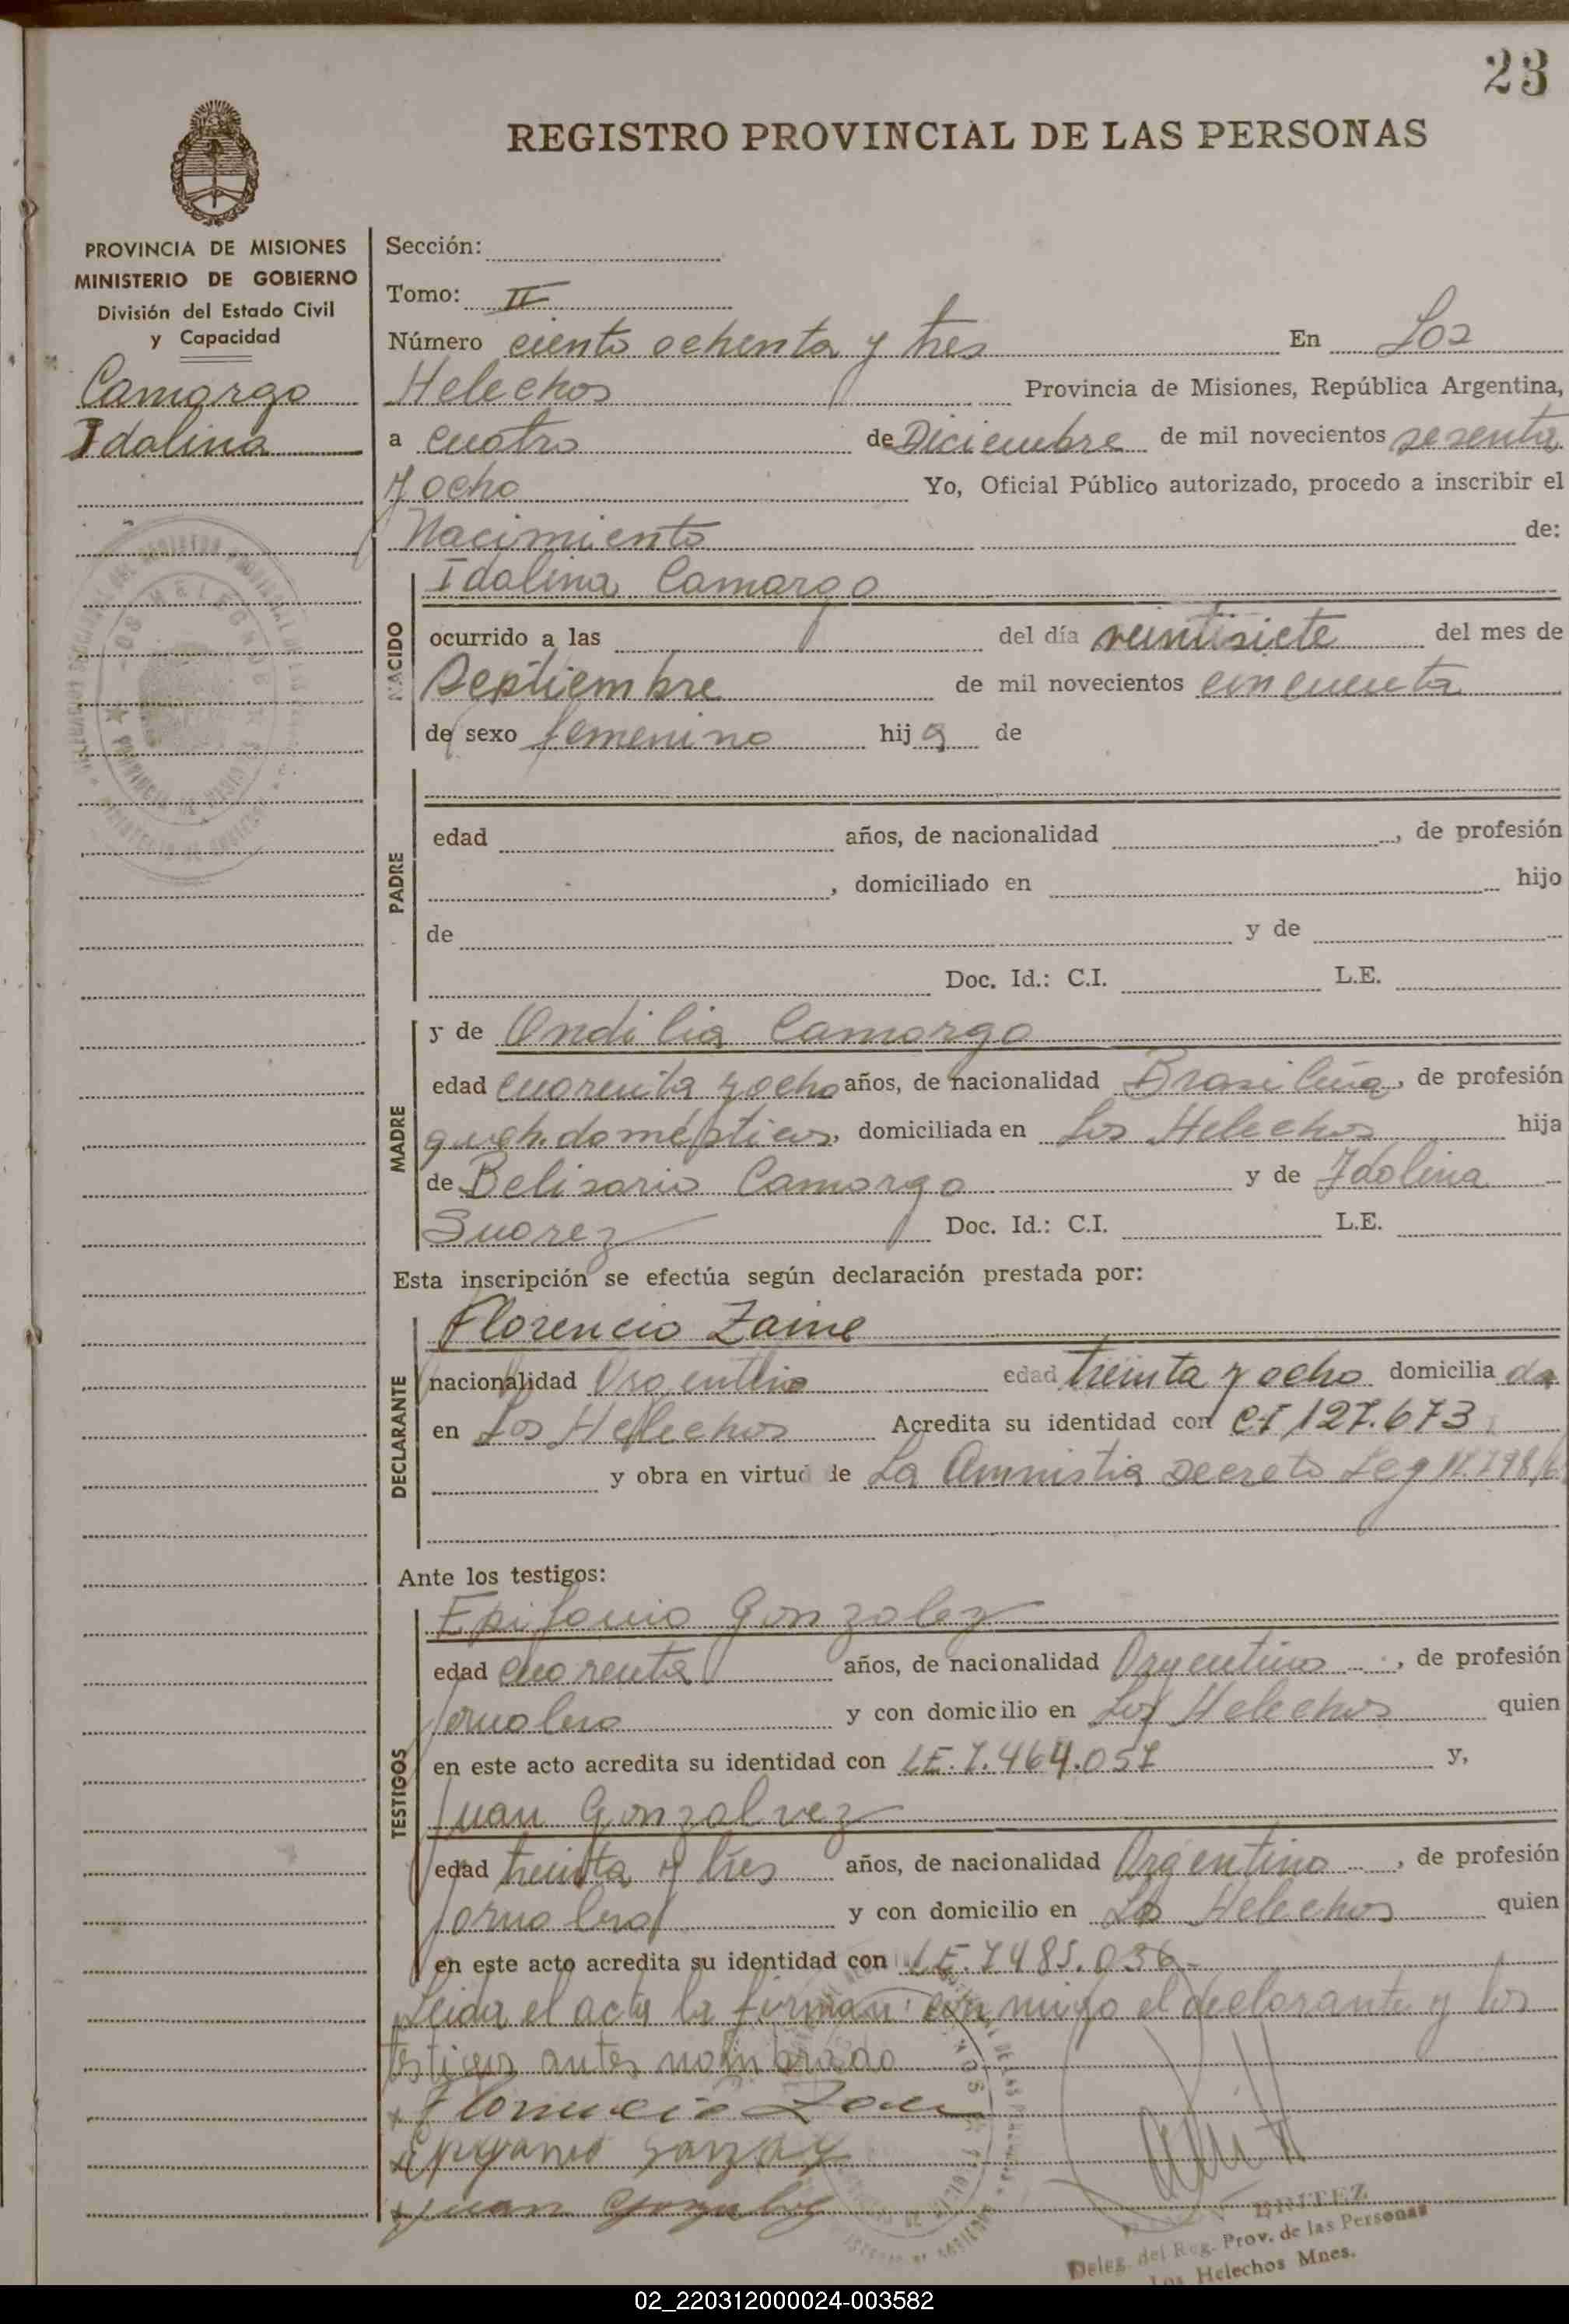 23
REGISTRO PROVINCIAL DE LAS PERSONAS
PROVINCIA DE MISIONES
MINISTERIO DE GOBIERNO
División del Estado Civil
y Capacidad
Camargo
Idalina
Sección:
Tomo: II
Número ciento ochenta y tres En Los
Helechos Provincia de Misiones, República Argentina,
a cuatro de Diciembre de mil novecientos sesenta
y ocho Yo, Oficial Público autorizado, procedo a inscribir el
Nacimiento de:
NACIDO
Idalina Camargo
ocurrido a las del día veintisiete del mes de
Septiembre de mil novecientos cincuenta
de sexo femenino hija de
PADRE
edad años, de nacionalidad , de profesión
, domiciliado en hijo
de y de
Doc. Id.: C.I. L.E.
MADRE
y de Ondilia Camargo
edad cuarenta y ocho años, de nacionalidad Brasileña, de profesión
queh. domésticos, domiciliada en Los Helechos hija
de Belisario Camargo y de Idolina
Suarez Doc. Id.: C.I. L.E.
Esta inscripción se efectúa según declaración prestada por:
DECLARANTE
Florencio Zaine
nacionalidad Argentino edad treinta y ocho domicilia do
en Los Helechos Acredita su identidad con CI 127.673
y obra en virtud de La Amnistia Decreto Ley
Ante los testigos:
TESTIGOS
Epifanio Gonzalez
edad cuarenta años, de nacionalidad Argentino, de profesión
Jornalero y con domicilio en Los Helechos quien
en este acto acredita su identidad con LE. 7.464.057 y,
Juan Gonzalvez
edad treinta y tres años, de nacionalidad Argentino, de profesión
Jornalero y con domicilio en Los Helechos quien
en este acto acredita su identidad con LE. 7485.036
Leida el acta la firman: con migo el declarante y los
testigos antes nombrado
Florencio
Juan
BRITEZ
Deleg. del Reg. Prov. de las Personas
Los Helechos Mnes.
02_220312000024-003582